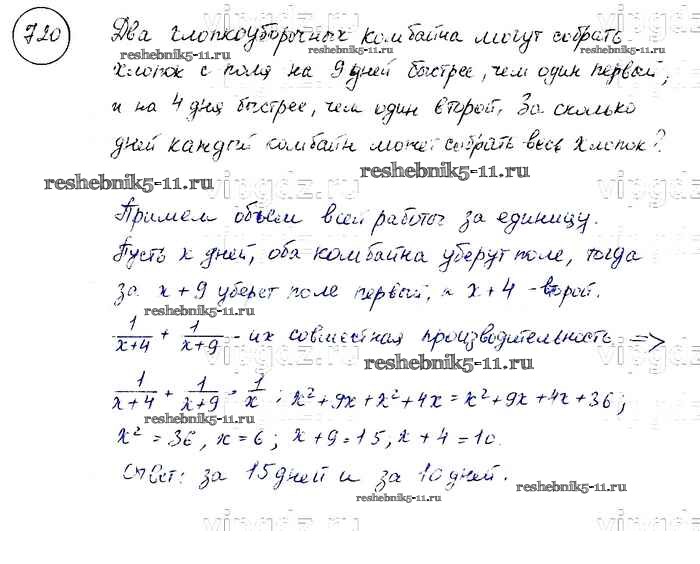 720
Два хлопкоуборочных комбайна могут собрать
хлопок с поля на 9 дней быстрее, чем один первый,
и на 4 дня быстрее, чем один второй. За сколько
дней каждый комбайн может собрать весь хлопок?
Примем объем всей работы за единицу.
Пусть x дней, оба комбайна уберут поле, тогда
за x+9 уберет поле первый, а x+4 - второй.
1/(x+4) + 1/(x+9) - их совместная производительность =>
1/(x+4) + 1/(x+9) = 1/x ; x² + 9x + x² + 4x = x² + 9x + 4x + 36 ;
x² = 36, x = 6 ; x + 9 = 15, x + 4 = 10.
Ответ: за 15 дней и за 10 дней.
reshebnik5-11.ru
reshebnik5-11.ru
reshebnik5-11.ru
reshebnik5-11.ru
reshebnik5-11.ru
reshebnik5-11.ru
reshebnik5-11.ru
reshebnik5-11.ru